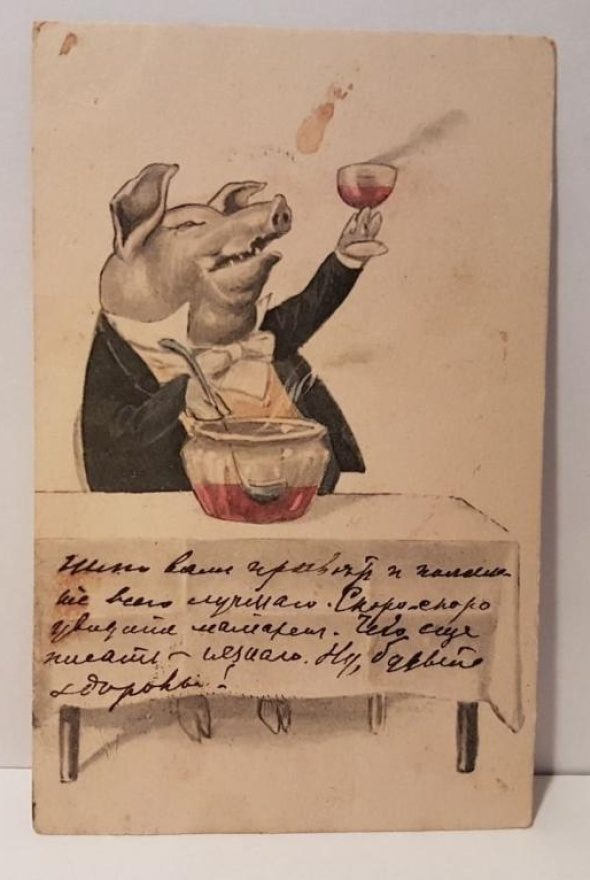 Шлю вамъ привѣтъ и пожела-
ніе всего лучшаго. Скоро-скоро
увидите
Что еще
писать – незнаю. Ну, будьте
здоровы!